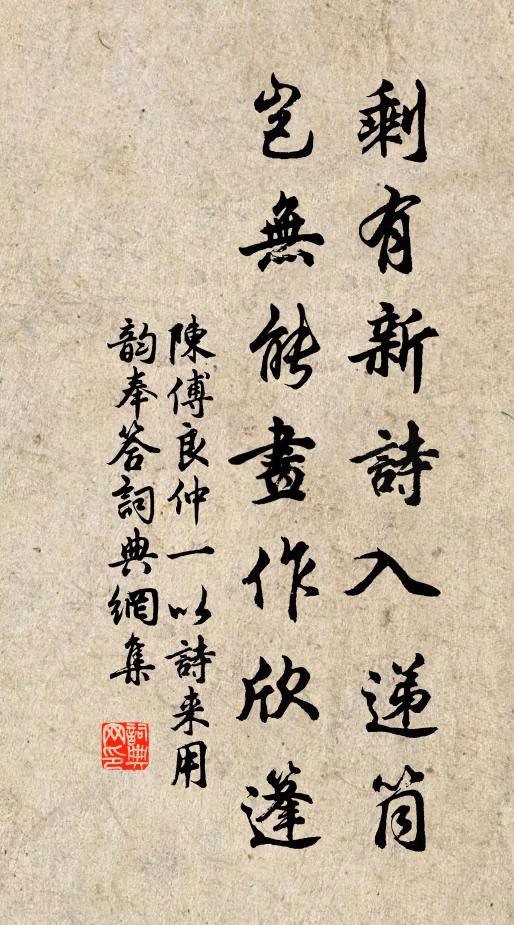 剩有新詩入递筒
豈無能畫作欣蓬
陳傅良仲一以詩来用
韵奉答詞典網集
詞典网印